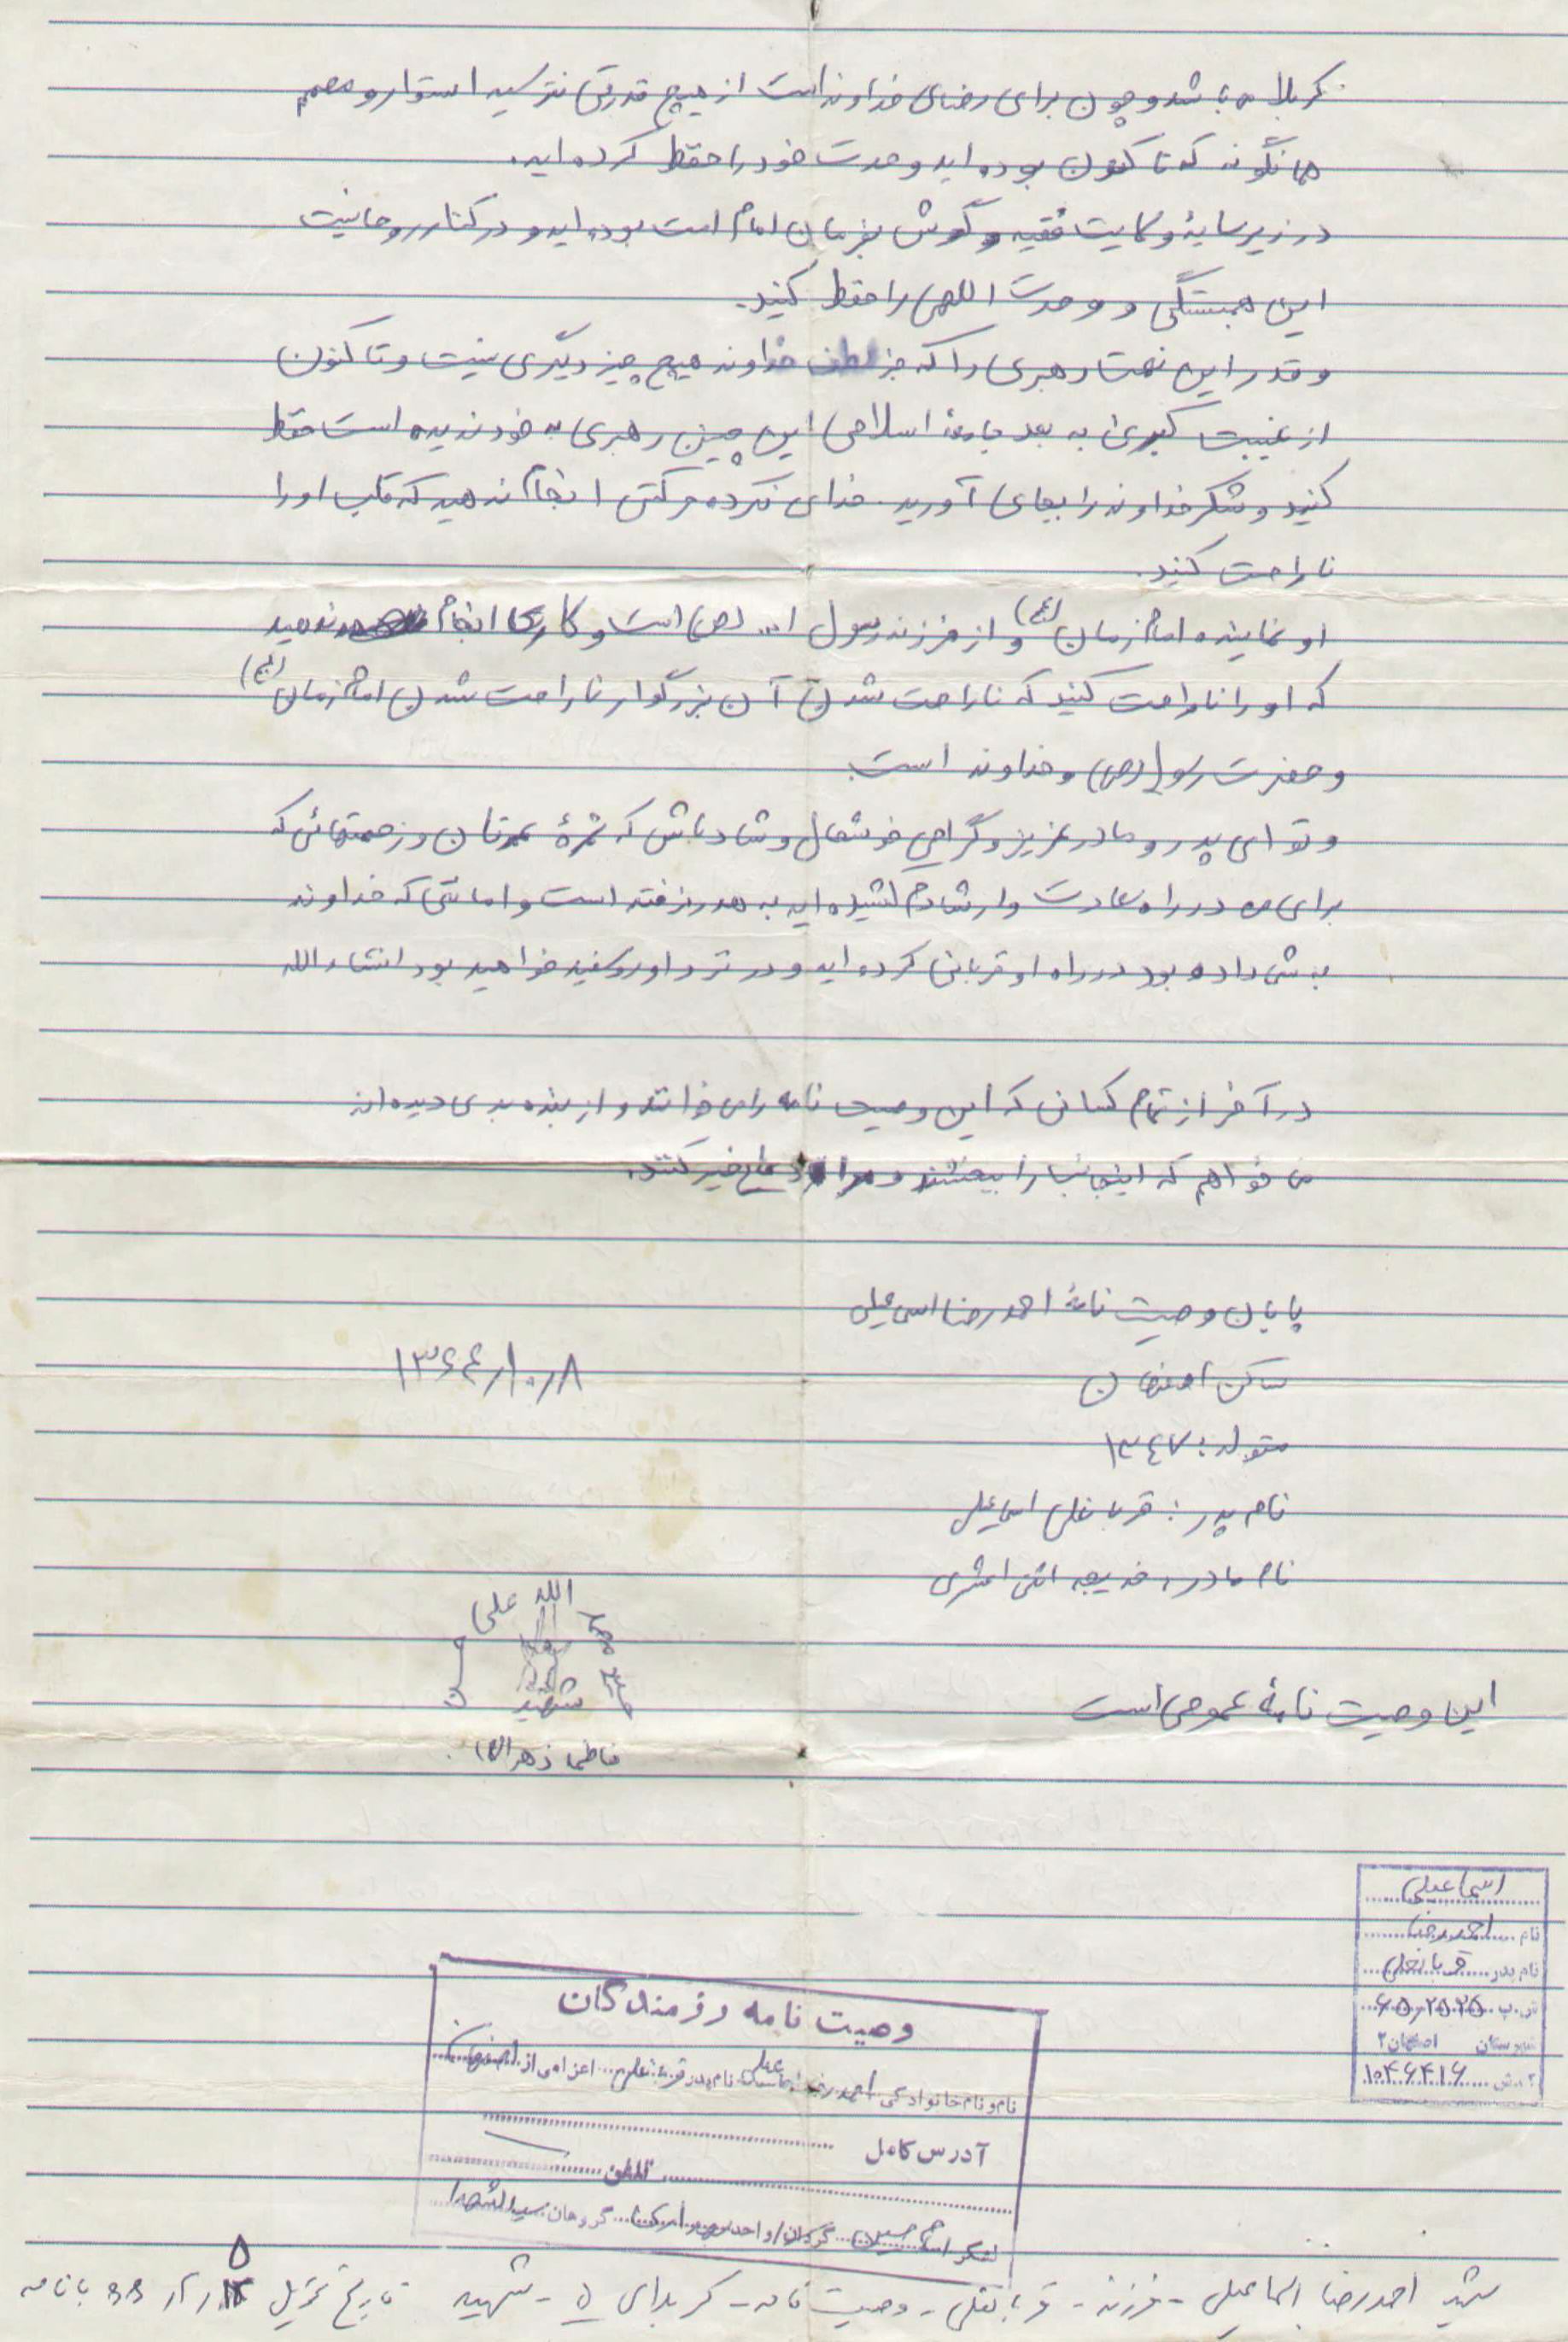 کربلا می باشد و چون برای رضای خداوند است از هیچ قدرتی نترسید استوار و مصمم
همانگونه که تا کنون بوده اید وحدت خود را حفظ کرده اید.
در زیر سایهٔ ولایت فقیه و گوش بفرمان امام امت بوده اید و در کنار روحانیت
این همبستگی و وحدت اللهی را حفظ کنید.
و قدر این نعمت رهبری را که جز لطف خداوند هیچ چیز دیگری نیست و تا کنون
از غیبت کبری به بعد جامعهٔ اسلامی این چنین رهبری به خود ندیده است حفظ
کنید و شکر خداوند را بجای آورید. خدای نکرده حرکتی انجام ندهید که قلب او را
ناراحت کنید.
او نماینده امام زمان (عج) و از فرزند رسول ا... (ص) است و کاری انجام ندهید
که او را ناراحت کنید که ناراحت شدن آن بزرگوار ناراحت شدن امام زمان (عج)
و حضرت رسول (ص) و خداوند است.
و تو ای پدر و مادر عزیز و گرامی خوشحال و شاد باش که ثمرهٔ عمرتان و زحمتهائی که
برای من در راه سعادت و ارشادم کشیده اید به هدر نرفته است و امانتی که خداوند
به شما داده بود در راه او قربانی کرده اید و در نزد او روسفید خواهید بود انشاءالله
در آخر از تمام کسانی که این وصیت نامه را می خوانند و از بنده بدی دیده اند
می خواهم که اینجانب را ببخشند و مرا دعای خیر کنند.
پایان وصیت نامهٔ احمدرضا اسماعیلی
۱۳۶۴/۱۰/۸
ساکن اصفهان
متولد: ۱۳۴۷
نام پدر: قربانعلی اسماعیلی
نام مادر: خدیجه اثنی اعشری
الله علی
محمد
شهید
حسن
فاطمه زهرا (س)
این وصیت نامهٔ عمومی است
اسماعیلی
نام احمدرضا
نام پدر قربانعلی
ش.پ ۶۵۰۲۵۲۵
شهرستان اصفهان ۲
ش ۱۰۴۶۴۱۶
وصیت نامه رزمندگان
نام و نام خانوادگی احمدرضا اسماعیلی نام پدر قربانعلی اعزامی از اصفهان
آدرس کامل
تلفن
لشکر امام حسین گردان/واحد گروهان سیدالشهدا
شهید احمدرضا اسماعیلی - فرزند - قربانعلی - وصیت نامه - کربلای ۵ - شهید تاریخ تحویل